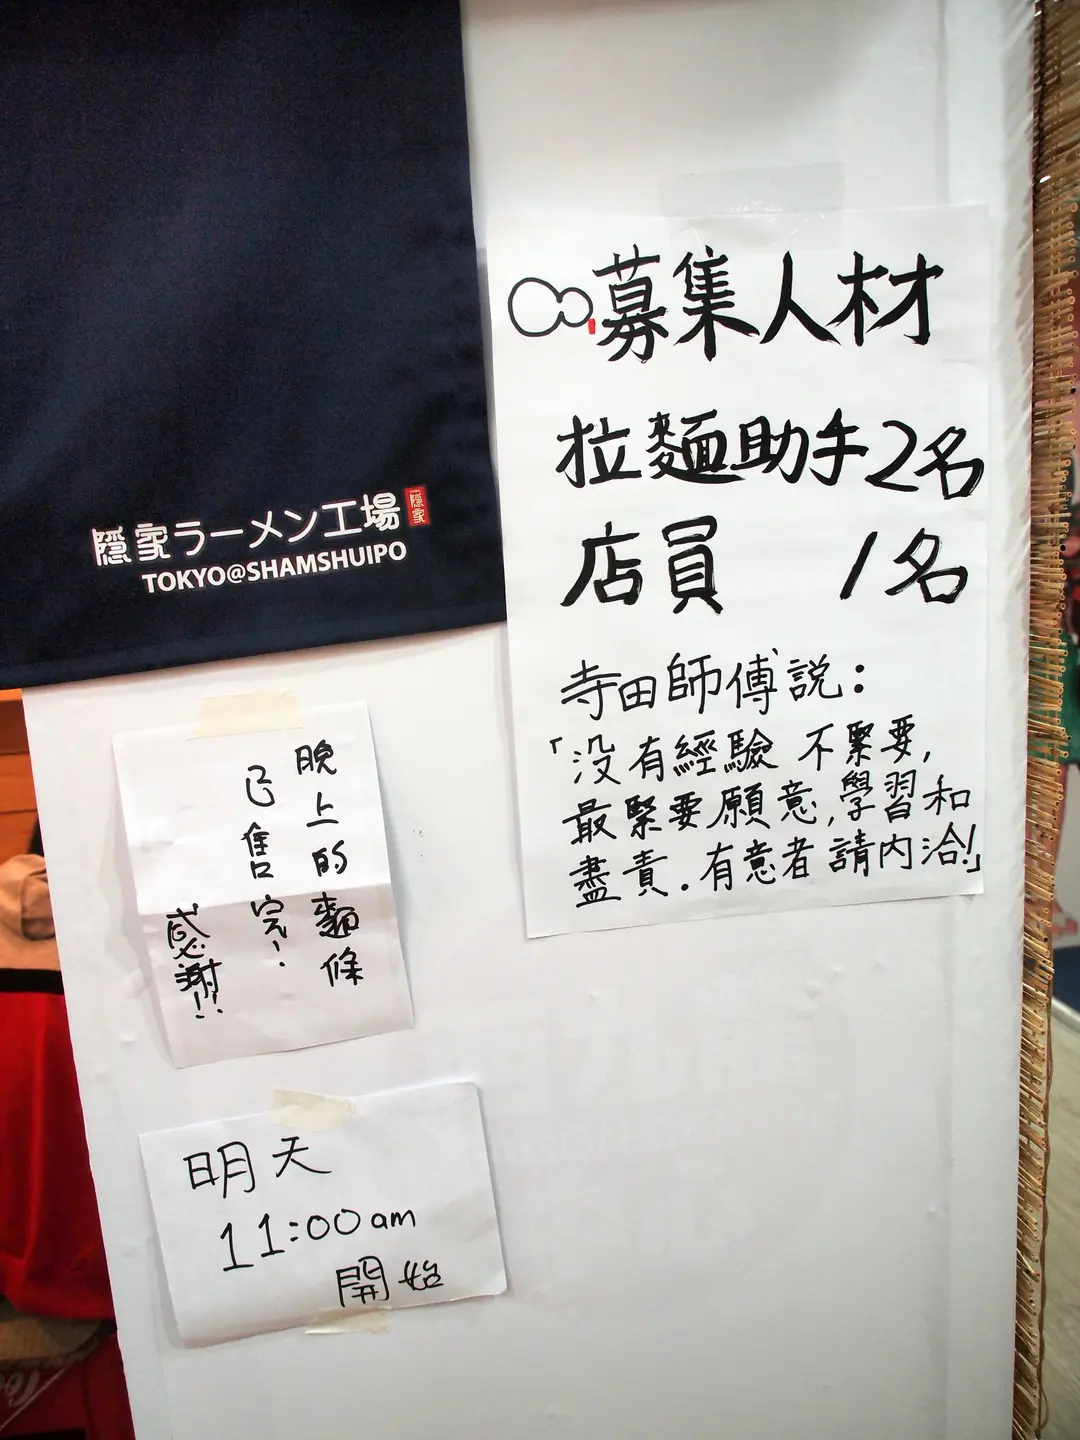 隠家ラーメン工場
隠家
TOKYO@SHAMSHUIPO
募集人材
拉麵助手2名
店員 1名
寺田師傅説：
「没有經驗 不緊要,
最緊要願意,學習和
盡責．有意者 請内洽!」
晚上的麵條
已售完!
感謝!!
明天
11:00am
開始